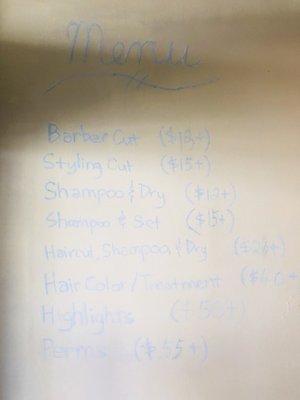 Menu
Barber Cut ($13+)
Styling Cut ($15+)
Shampoo & Dry
Shampoo & Set ($15+)
Haircut, Shampoo & Dry
Hair Color/Treatment
Highlights
Perms ($55+)